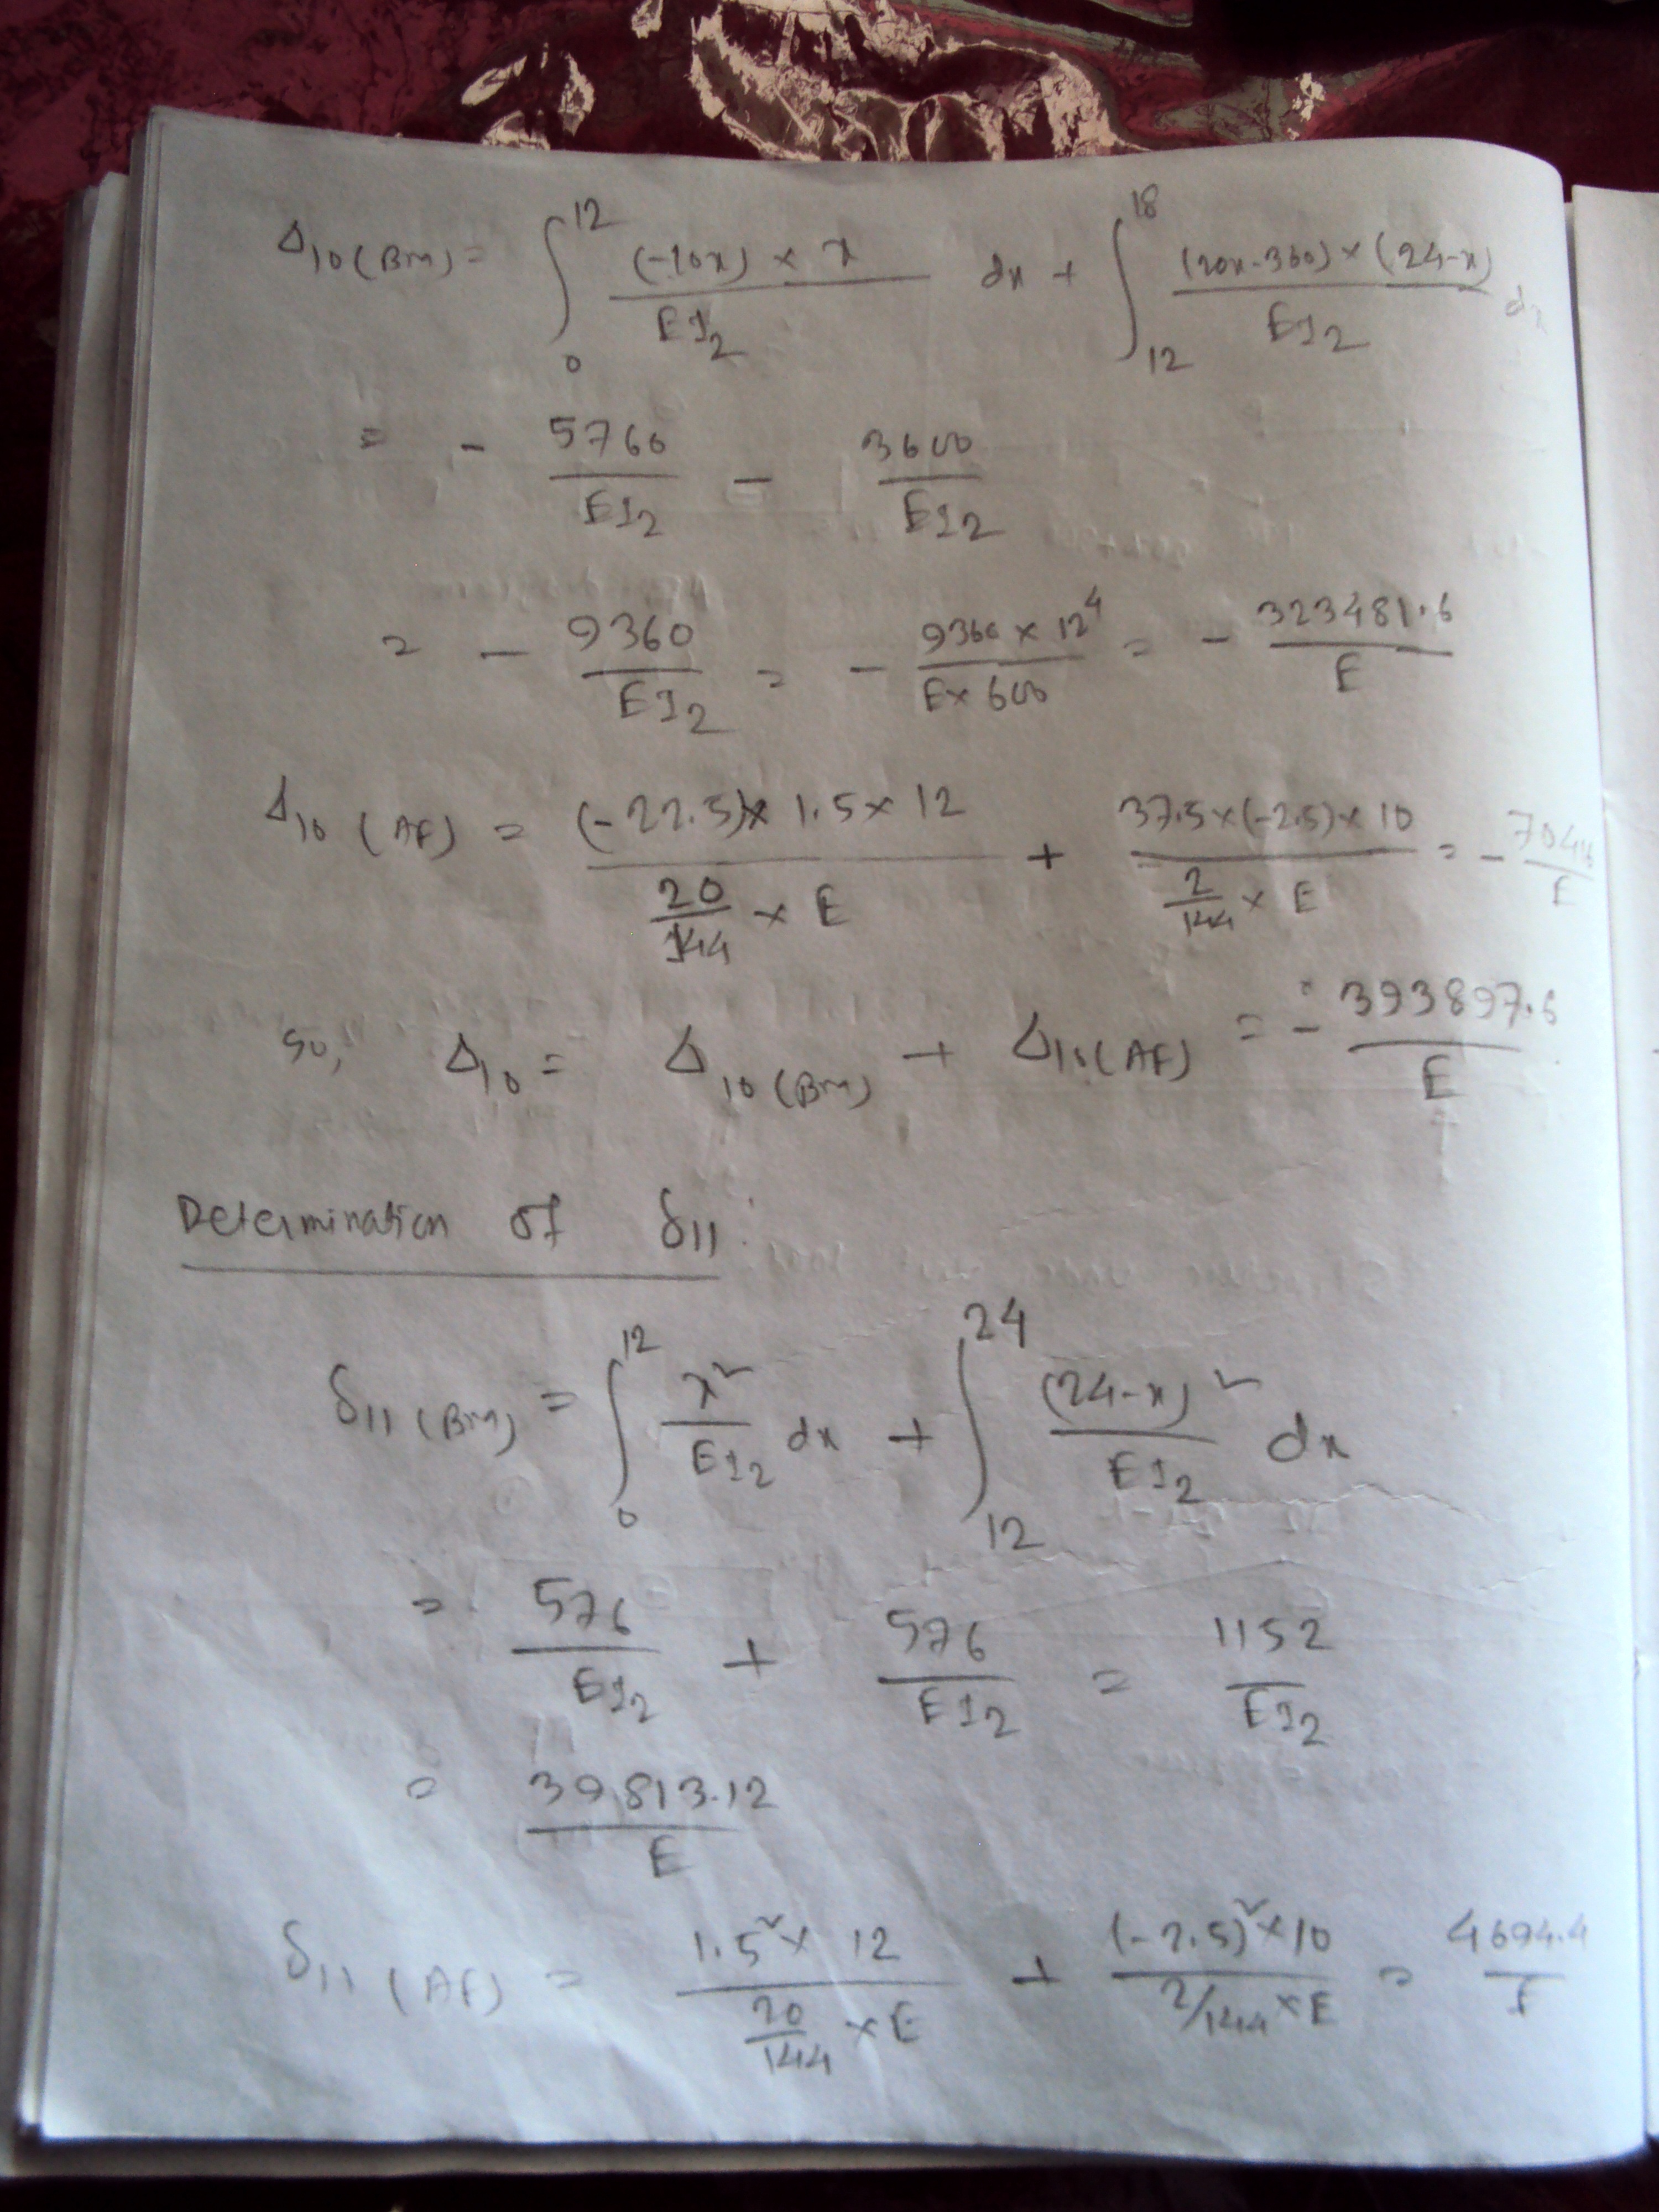 Δ₁₀(BM) = ∫₀¹² (-10x) × x / EI₂ dx + ∫₁₂¹⁸ (20x-360) × (24-x) / EI₂ dx
= - 5760 / EI₂ - 3600 / EI₂
= - 9360 / EI₂ = - 9360 × 12⁴ / E × 600 = - 323481.6 / E
Δ₁₀ (AF) = (-22.5) × 1.5 × 12 / (20/144 × E) + 37.5 × (-2.5) × 10 / (2/144 × E) = -
so, Δ₁₀ = Δ₁₀(BM) + Δ₁₀(AF) = - 393897.6 / E
Determination of δ₁₁:
δ₁₁(BM) = ∫₀¹² x² / EI₂ dx + ∫₁₂²⁴ (24-x)² / EI₂ dx
= 576 / EI₂ + 576 / EI₂ = 1152 / EI₂
= 39813.12 / E
δ₁₁ (AF) = 1.5² × 12 / (20/144 × E) + (-2.5)² × 10 / (2/144 × E) = 4694.4 / E